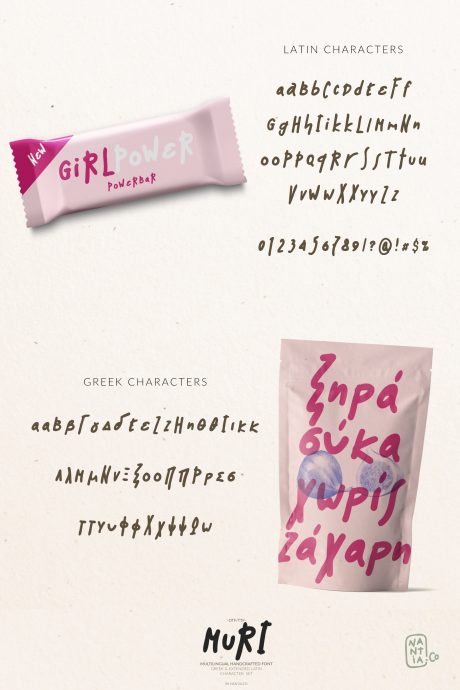 LATIN CHARACTERS
aaBbCcDdEeFf
GgHhIikkLlMmNn
ooPPqqRrSsTtuu
VvWwXXyyZz
0123456789!?@!#$%
New
GiRLPOWER
POWERBAR
GREEK CHARACTERS
ααββΓγΔδΕεΖζΗηθθΙικκ
ΛλΜμΝνΞξοοΠπΡρΣσ
ΤτΥυΦφΧχΨψΩω
ξηρά
σύκα
χωρίς
ζάχαρη
MURI
MULTILINGUAL HANDCRAFTED FONT
GREEK & EXTENDED LATIN
CHARACTER SET
BY NANTIA.CO
NANTIA.CO